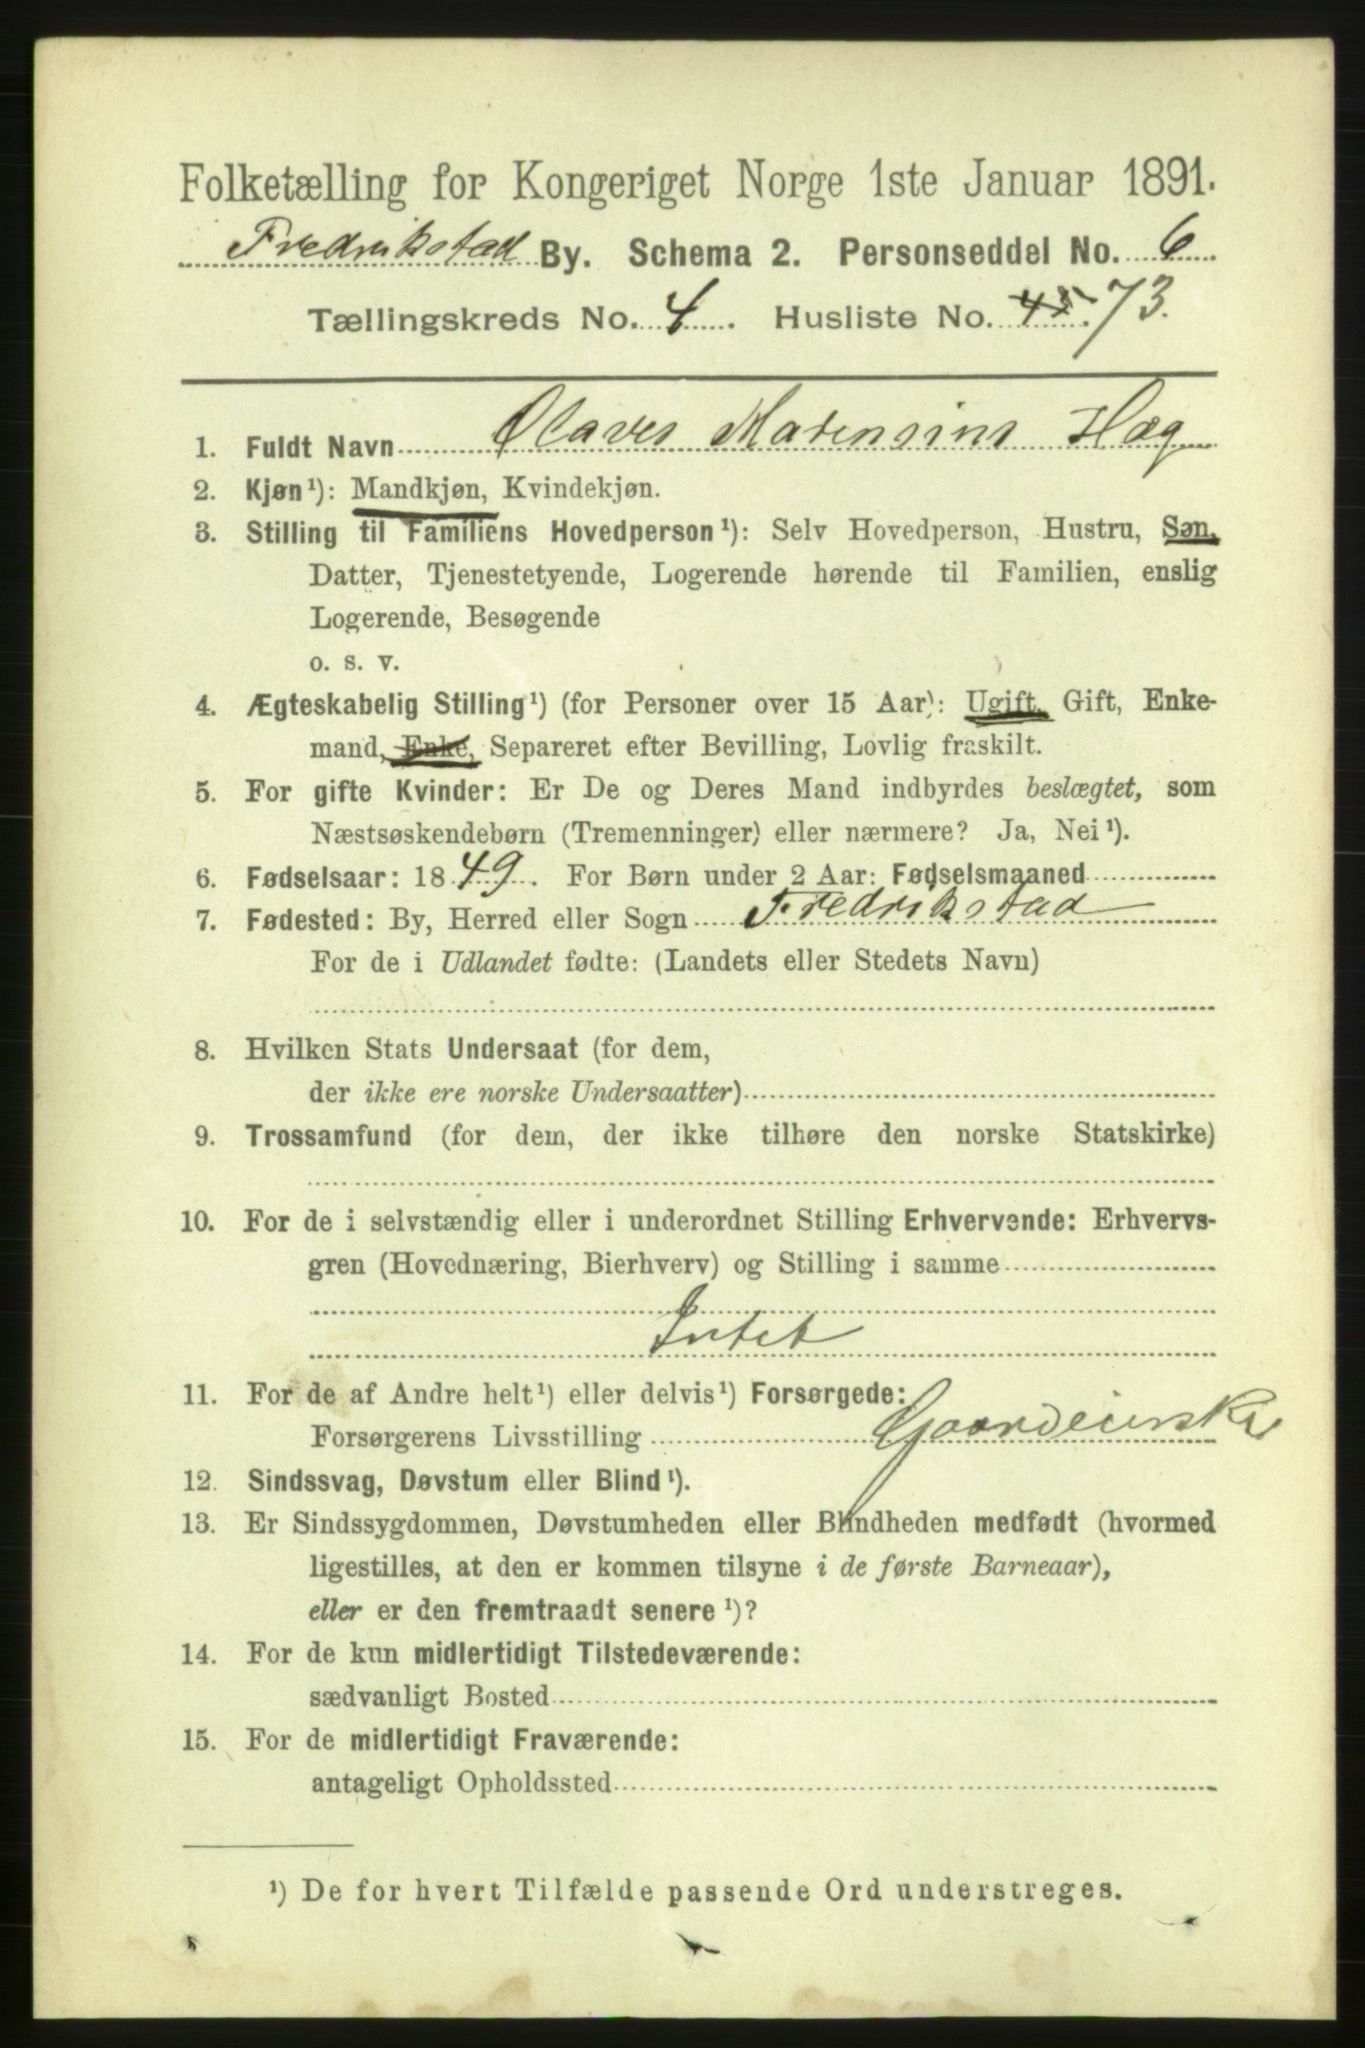 Folketælling for Kongeriget Norge 1ste Januar 1891.
Fredrikstad By. Schema 2. Personseddel No. 6
Tællingskreds No. 4. Husliste No. 45. 73.
1. Fuldt Navn Olaves Marensins Høg
2. Kjøn¹): Mandkjøn, Kvindekjøn.
3. Stilling til Familiens Hovedperson¹): Selv Hovedperson, Hustru, Søn,
Datter, Tjenestetyende, Logerende hørende til Familien, enslig
Logerende, Besøgende
o. s. v.
4. Ægteskabelig Stilling¹) (for Personer over 15 Aar): Ugift, Gift, Enke-
mand, Enke, Separeret efter Bevilling, Lovlig fraskilt.
5. For gifte Kvinder: Er De og Deres Mand indbyrdes beslægtet, som
Næstsøskendebørn (Tremenninger) eller nærmere? Ja, Nei¹).
6. Fødselsaar: 1849. For Børn under 2 Aar: Fødselsmaaned
7. Fødested: By, Herred eller Sogn Fredrikstad
For de i Udlandet fødte: (Landets eller Stedets Navn)
8. Hvilken Stats Undersaat (for dem,
der ikke ere norske Undersaatter)
9. Trossamfund (for dem, der ikke tilhøre den norske Statskirke)
10. For de i selvstændig eller i underordnet Stilling Erhvervende: Erhvervs-
gren (Hovednæring, Bierhverv) og Stilling i samme
Intet
11. For de af Andre helt¹) eller delvis¹) Forsørgede:
Forsørgerens Livsstilling Gaardeierske
12. Sindssvag, Døvstum eller Blind¹).
13. Er Sindssygdommen, Døvstumheden eller Blindheden medfødt (hvormed
ligestilles, at den er kommen tilsyne i de første Barneaar),
eller er den fremtraadt senere¹)?
14. For de kun midlertidigt Tilstedeværende:
sædvanligt Bosted
15. For de midlertidigt Fraværende:
antageligt Opholdssted
¹) De for hvert Tilfælde passende Ord understreges.